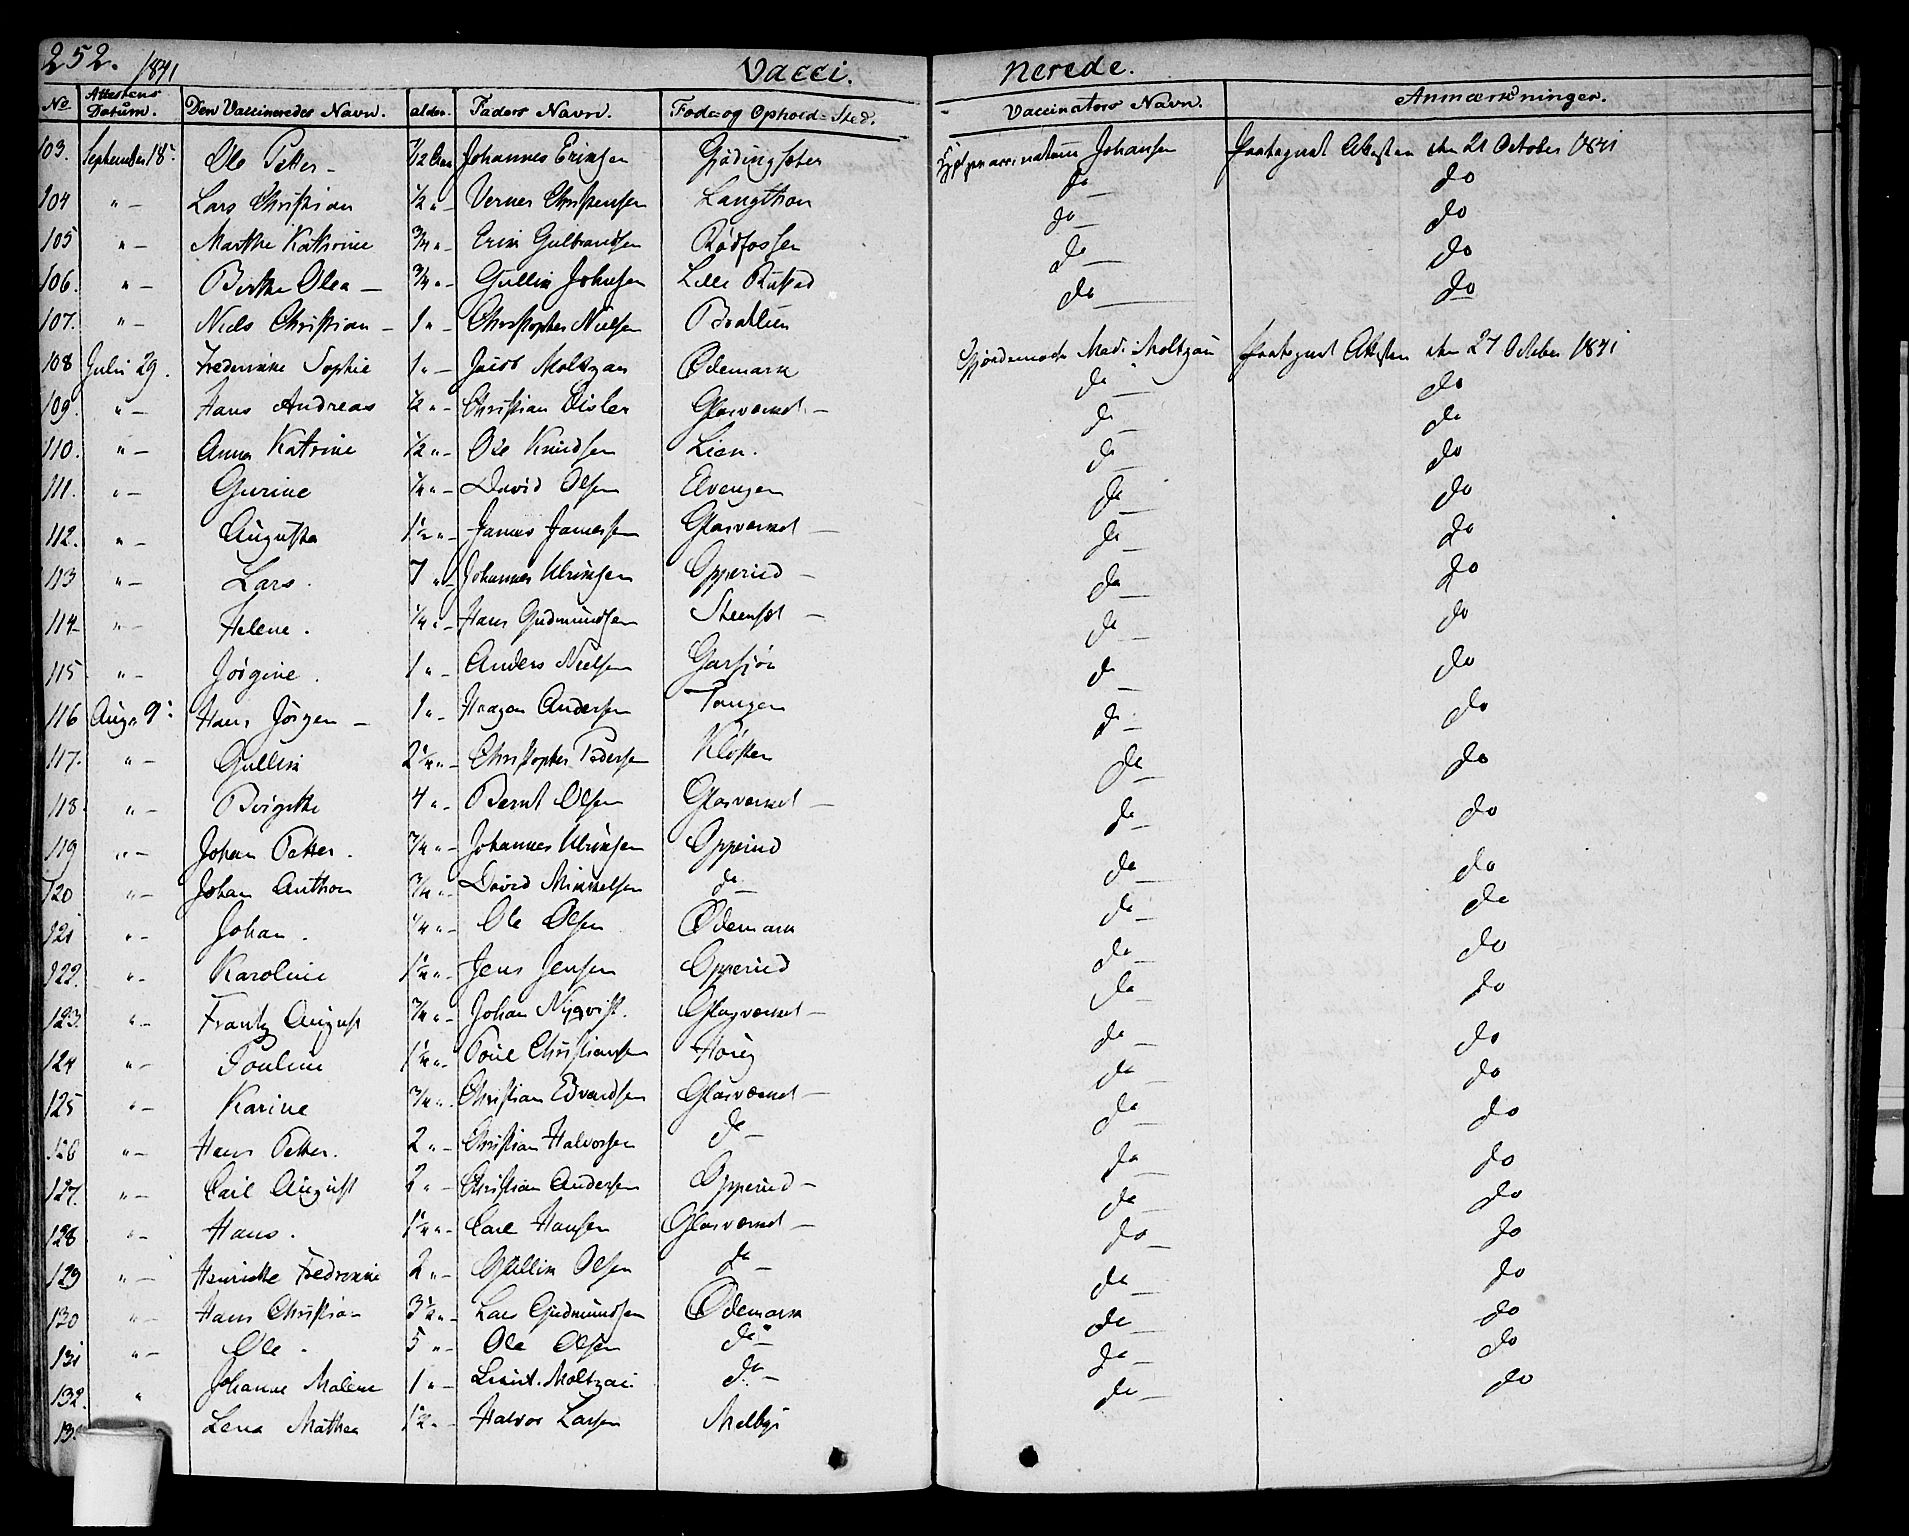 252. 1841 Vacci. nerede.
No Attestens Datum. Den Vaccineredes Navn. alder. Faders Navn. Føde- og Ophold-Sted. Vaccinators Navn. Anmærkninger.
103. September 18. Ole Petter - 7/12 Johannes Ericksen Johansen Paategnet Attesten den 21 October 1841
104 " - Lars Christian 1/2 " - Verner Christensen Langthon do - do
105 " - Marthe Kathrine 3/4 " - Erik Gulbrandsen Rødfossen do - do
106. " - Birthe Olea - 3/4 " - Gullik Johnsen Lille Rustad do - do
107. " - Niels Christian - 1 " - Christopher Nielsen do - do
108 Julii 29. Frederikke Sophie 1 " - Jacob Moltzau Ødemark Gjordemoder Mad: Moltzau Paategnet Attesten den 27 October 1841
109. " - Hans Andreas 1/2 " - Christian Eisler Glasværket - do - do
110. " - Anne Katrine 1/2 " - Ole Knudsen Lien. do - do
111. " - Gurine 1/4 " - David Olsen Elvengen do - do
112. " - Augusta 1 1/2 " - James Jamessen Glasværket - do - do
113 " - Lars. 7 " - Johannes Ulriksen Opperud - do - do
114 " - Helene. 1/4 " - Hans Gudmundsen Steenset - do - do
115 " - Jørgine. 1 " - Anders Nielsen Garsjøn do - do
116 Aug. 9 Hans Jørgen - 1 " - Haagen Andersen Tangen do - do
117. " - Gullik 2 1/4 " - Christopher Pedersen Kløften do - do
118. " - Birgitte 4 " - Bernt Olsen Glasværket - do - do
119 " - Johan Petter. 7/4 " - Johannes Ulriksen Opperud do - do
120 " - Johan Anthon 3/4 " - David Mikkelsen do - do - do
121 " - Johan. 1/4 " - Ole Olsen Ødemark do - do
122. " - Karoline 1 1/4 " - Jens Jensen Opperud do - do
123. " - Frantz August 3/4 " - Johan Nyqvist. Glasværket - do - do
124 " - Pouline 1 1/4 " - Poul Christiansen Haug do - do
125 " - Karine 3/4 " - Christian Edvardsen Glasværket - do - do
126 " - Hans Petter. 2 " - Christian Halvorsen do - do - do
127. " - Carl August 2 " - Christian Andersen Opperud - do - do
128 " - Hans. 1 1/4 " - Carl Hansen Glasværket - do - do
129 " - Henriette Fredrikke 2 " - Gullik Olsen do - do - do
130 " - Hans Christian 3 1/2 " - Lars Gudmundsen Ødemark do - do
131 " - Ole. 5 " - Ole Olsen do - do - do
132. " Johanne Malene 1 " - Lieut. Moltzau. do - do - do
13 Lena Mathea 1/2 " - Halvor Larsen Melbye